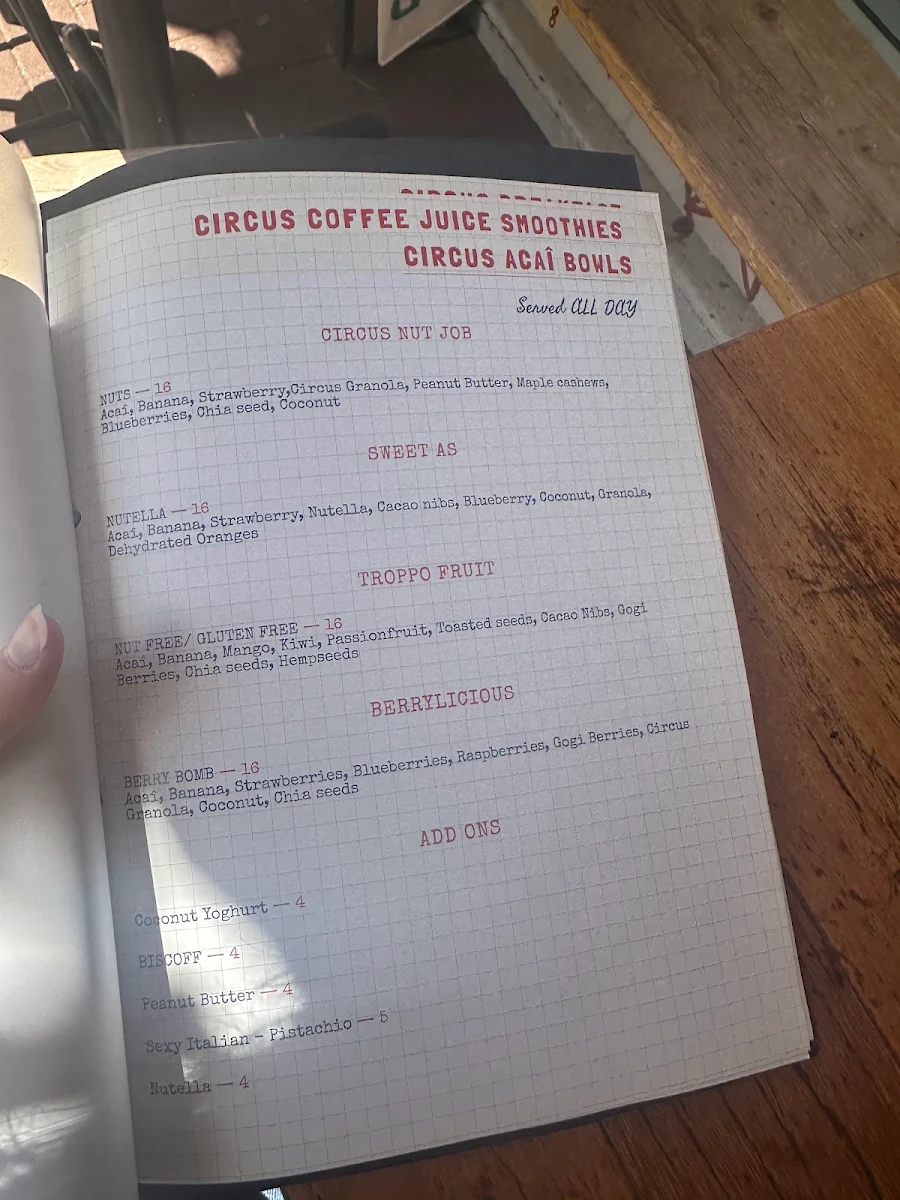 CIRCUS BREAKFAST
CIRCUS COFFEE JUICE SMOOTHIES
CIRCUS ACAÎ BOWLS
Served ALL DAY
CIRCUS NUT JOB
NUTS — 16
Acaî, Banana, Strawberry,Circus Granola, Peanut Butter, Maple cashews,
Blueberries, Chia seed, Coconut
SWEET AS
NUTELLA — 16
Acaî, Banana, Strawberry, Nutella, Cacao nibs, Blueberry, Coconut, Granola,
Dehydrated Oranges
TROPPO FRUIT
NUT FREE/ GLUTEN FREE — 16
Acaî, Banana, Mango, Kiwi, Passionfruit, Toasted seeds, Cacao Nibs, Gogi
Berries, Chia seeds, Hempseeds
BERRYLICIOUS
BERRY BOMB — 16
Acaî, Banana, Strawberries, Blueberries, Raspberries, Gogi Berries, Circus
Granola, Coconut, Chia seeds
ADD ONS
Coconut Yoghurt — 4
BISCOFF — 4
Peanut Butter — 4
Sexy Italian - Pistachio — 5
Nutella — 4
8